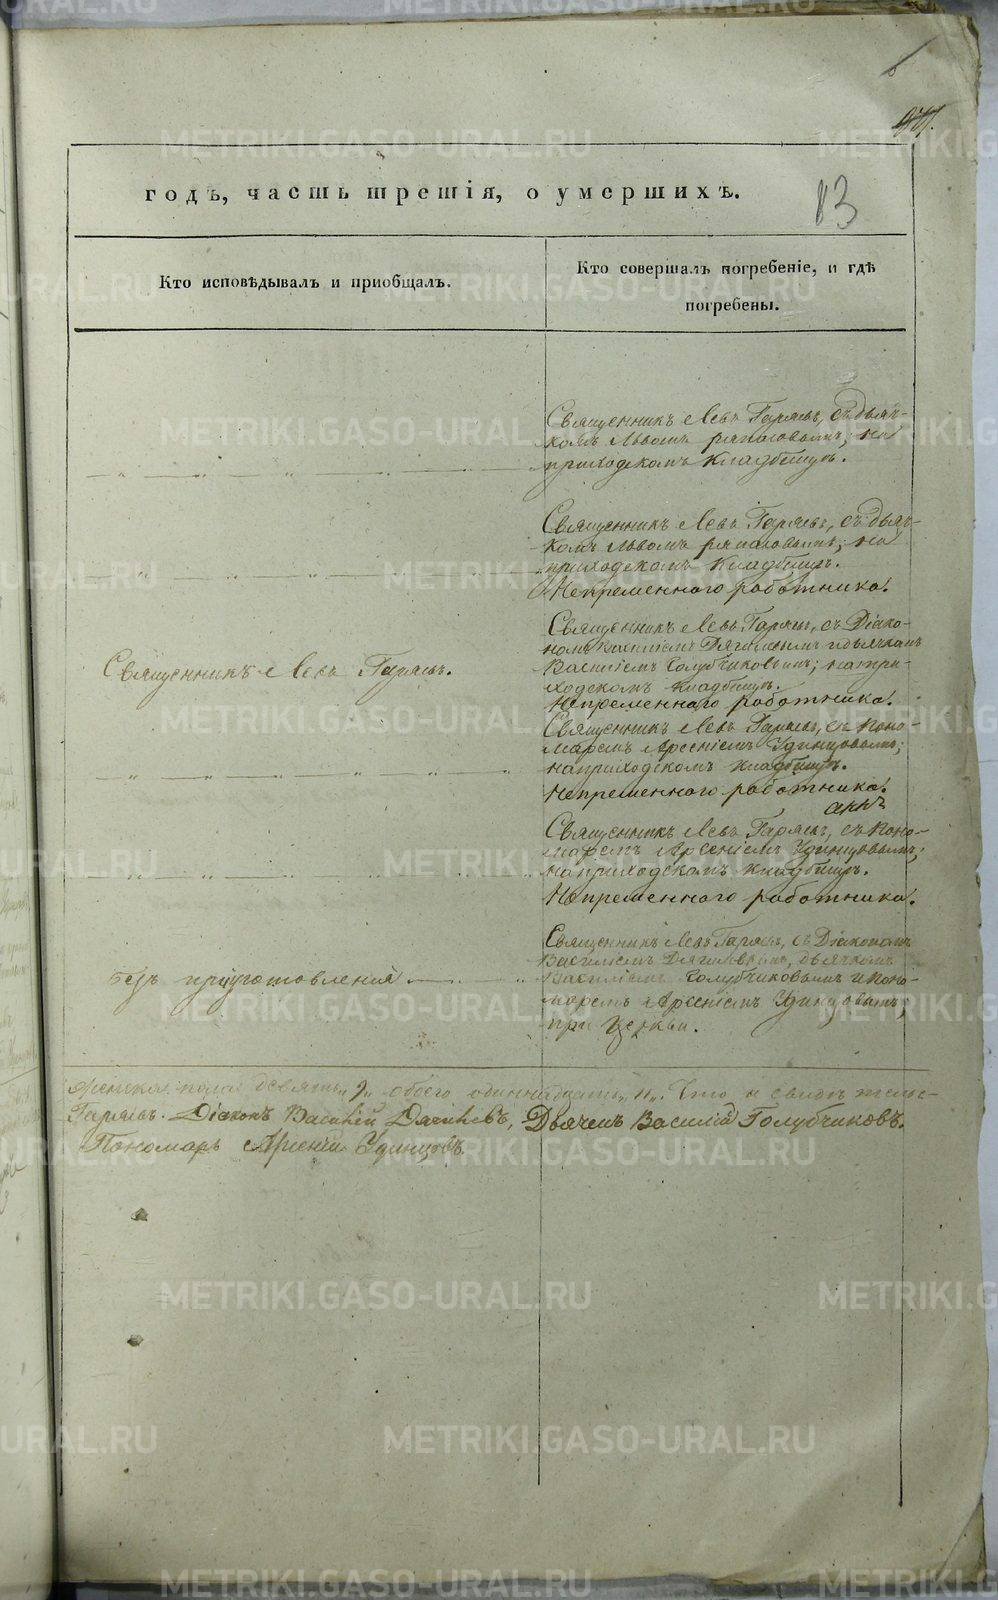 годъ, часть третія, о умершихъ.
13
Кто исповѣдывалъ и приобщалъ.
Кто совершалъ погребеніе, и гдѣ
погребены.
Священникъ Левъ Гаряевъ, съ дьяч-
комъ Львомъ на
приходскомъ кладбищѣ.
Священникъ Левъ Гаряевъ, съ дьяч-
комъ Львомъ на
приходскомъ кладбищѣ.
Непременного работника.
Священникъ Левъ Гаряевъ.
Священникъ Левъ Гаряевъ, съ Діако-
номъ Василіемъ Дягилевымъ и дьячкомъ
Василіемъ Голубчиковымъ; на при-
ходскомъ кладбищѣ.
Непременного работника.
Священникъ Левъ Гаряевъ, съ поно-
маремъ Арсеніемъ Удинцовымъ;
на приходскомъ кладбищѣ.
Непременного работника.
Священникъ Левъ Гаряевъ, съ поно-
маремъ Арсеніемъ Удинцовымъ;
на приходскомъ кладбищѣ.
Непременного работника.
безъ приуготовленія
Священникъ Левъ Гаряевъ, съ Діакономъ
Василіемъ Дягилевымъ, дьячкомъ
Василіемъ Голубчиковымъ и поно-
маремъ Арсеніемъ Удинцовымъ;
при церкви.
женска пола девять „9„ обоего одиннадцать „11„. Что и свидѣтель-
Гаряевъ. Діаконъ Василій Дягилевъ, Дьячекъ Василій Голубчиковъ.
Пономарь Арсеній Удинцовъ
METRIKI.GASO-URAL.RU